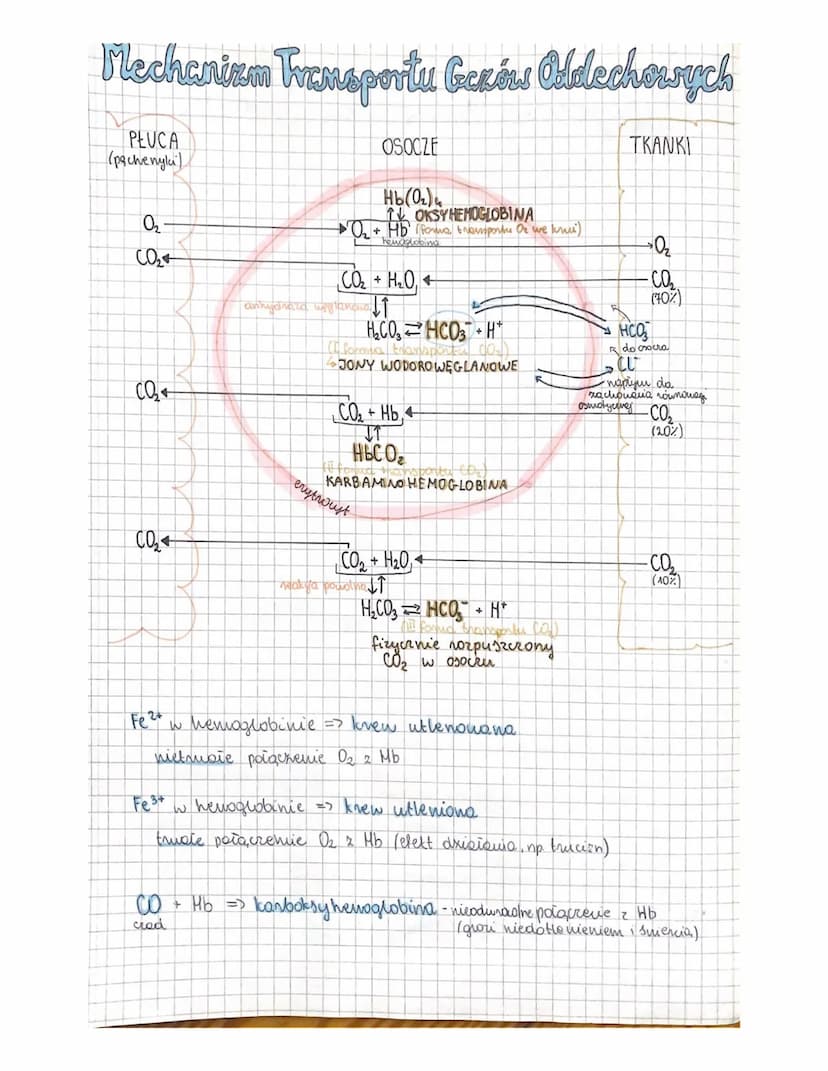 Mechanizm Transportu Gazów Oddechowych
PŁUCA
(pęcherzyki)
OSOCZE
TKANKI
Hb(O₂)₄
↑↓ OKSYHEMOGLOBINA
O₂
O₂ + Hb (forma transportu O₂ we krwi)
hemoglobina
O₂
CO₂
CO₂ + H₂O
CO₂
(70%)
anhydraza węglanowa ↓↑
H₂CO₃ ⇄ HCO₃⁻ + H⁺
HCO₃⁻
(I forma transportu CO₂)
do osocza
↳ JONY WODOROWĘGLANOWE
Cl⁻
napływ do
zachowania równowagi
osmotycznej
CO₂
CO₂ + Hb
CO₂
(20%)
↓↑
HbCO₂
(II forma transportu CO₂)
KARBAMINOHEMOGLOBINA
erytrocyt
CO₂
CO₂ + H₂O
CO₂
(10%)
reakcja powolna ↓↑
H₂CO₃ ⇄ HCO₃⁻ + H⁺
(III forma transportu CO₂)
fizycznie rozpuszczony
CO₂ w osoczu
Fe²⁺ w hemoglobinie => krew utlenowana
nietrwałe połączenie O₂ z Hb
Fe³⁺ w hemoglobinie => krew utleniona
trwałe połączenie O₂ z Hb (efekt działania, np. trucizn)
CO + Hb => karboksyhemoglobina - nieodwracalne połączenie z Hb
czad
(grozi niedotlenieniem i śmiercią)